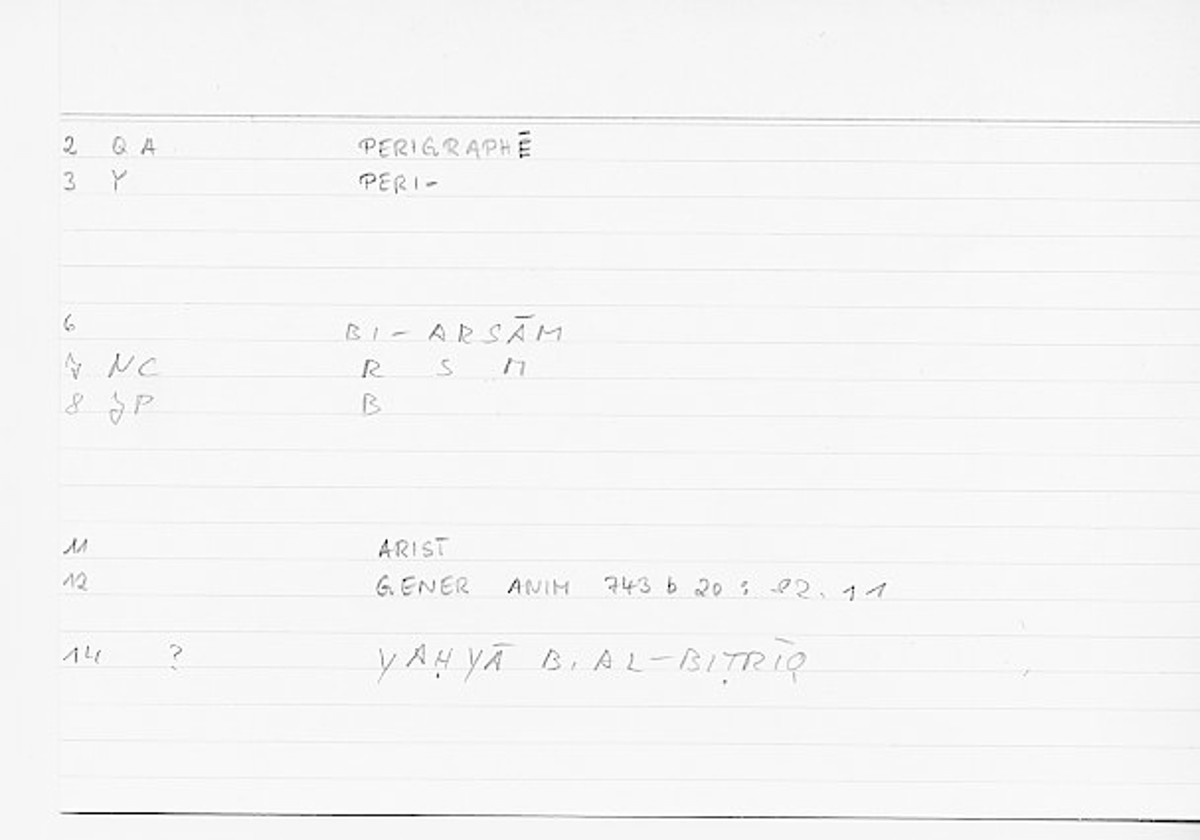 2 Q A PERIGRAPHĒ
3 Y PERI-
6 BI-ARSĀM
7 NC R S M
8 P B
11 ARIST
12 GENER ANIM 743 b 20 : 92. 11
14 ? YAḤYĀ B. AL-BIṬRĪQ